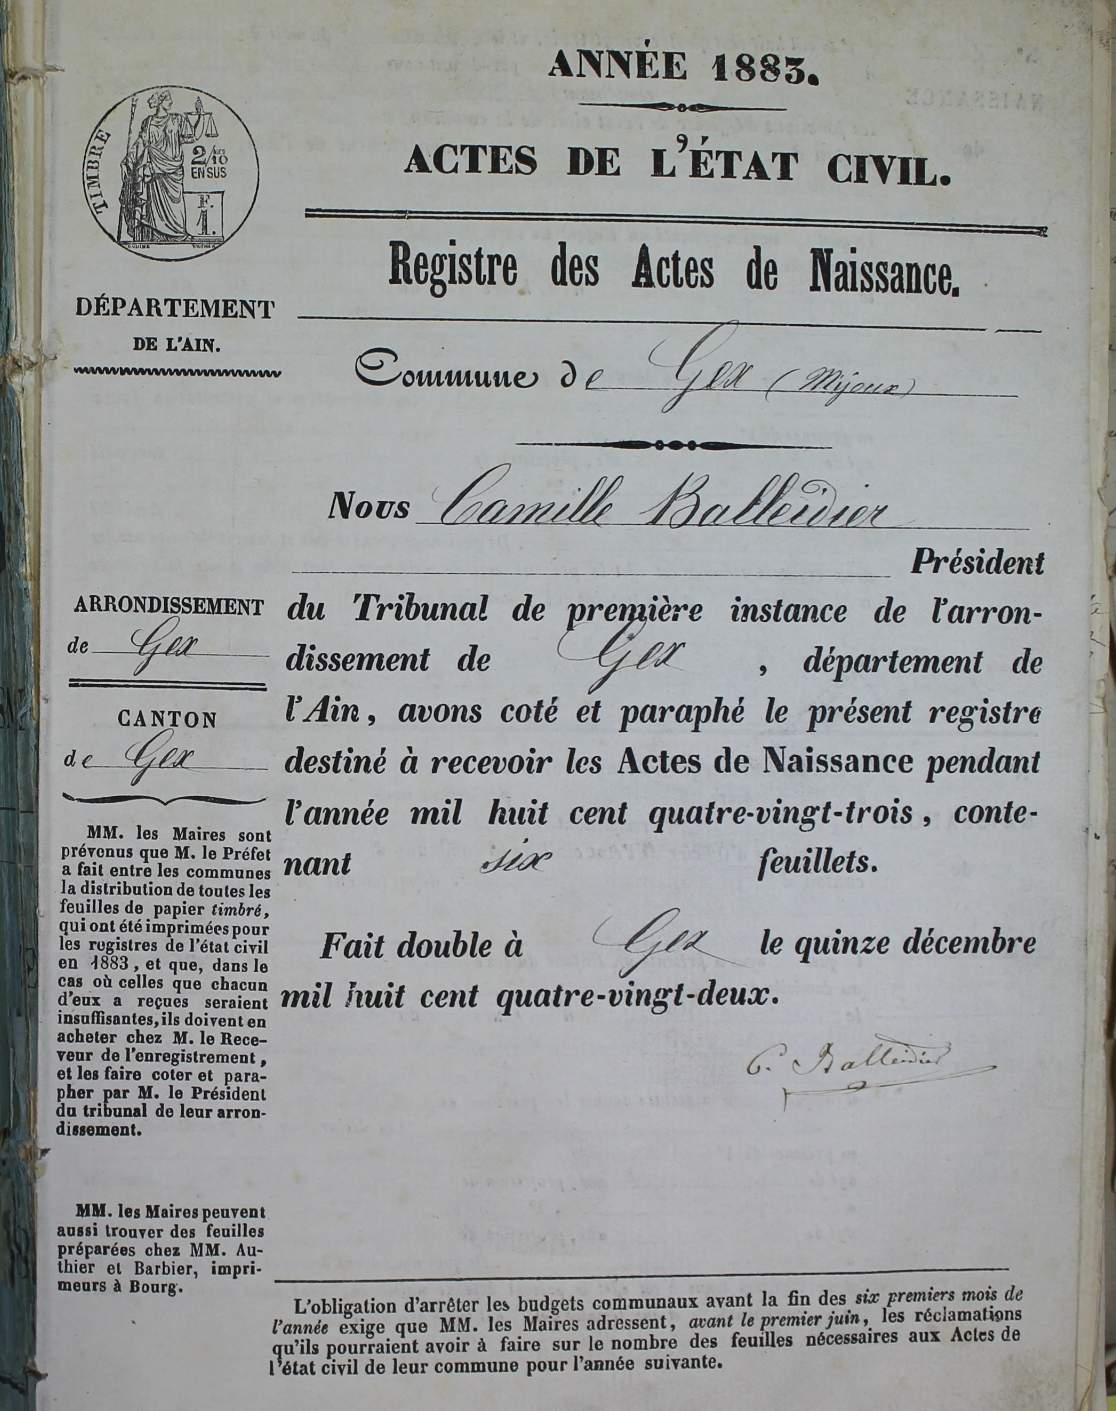 ANNÉE 1883.
ACTES DE L'ÉTAT CIVIL.
TIMBRE
2/10
EN SUS
F.
1.
Registre des Actes de Naissance.
DÉPARTEMENT
DE L'AIN.
Commune de Gex (Mijoux)
Nous Camille Balleidier
Président
du Tribunal de première instance de l'arron-
dissement de Gex, département de
l'Ain, avons coté et paraphé le présent registre
destiné à recevoir les Actes de Naissance pendant
l'année mil huit cent quatre-vingt-trois, conte-
nant six feuillets.
Fait double à Gex le quinze décembre
mil huit cent quatre-vingt-deux.
C. Balleidier
ARRONDISSEMENT
de Gex
CANTON
de Gex
MM. les Maires sont
prévenus que M. le Préfet
a fait entre les communes
la distribution de toutes les
feuilles de papier timbré,
qui ont été imprimées pour
les registres de l'état civil
en 1883, et que, dans le
cas où celles que chacun
d'eux a reçues seraient
insuffisantes, ils doivent en
acheter chez M. le Rece-
veur de l'enregistrement,
et les faire coter et para-
pher par M. le Président
du tribunal de leur arron-
dissement.
MM. les Maires peuvent
aussi trouver des feuilles
préparées chez MM. Au-
thier et Barbier, impri-
meurs à Bourg.
L'obligation d'arrêter les budgets communaux avant la fin des six premiers mois de
l'année exige que MM. les Maires adressent, avant le premier juin, les réclamations
qu'ils pourraient avoir à faire sur le nombre des feuilles nécessaires aux Actes de
l'état civil de leur commune pour l'année suivante.